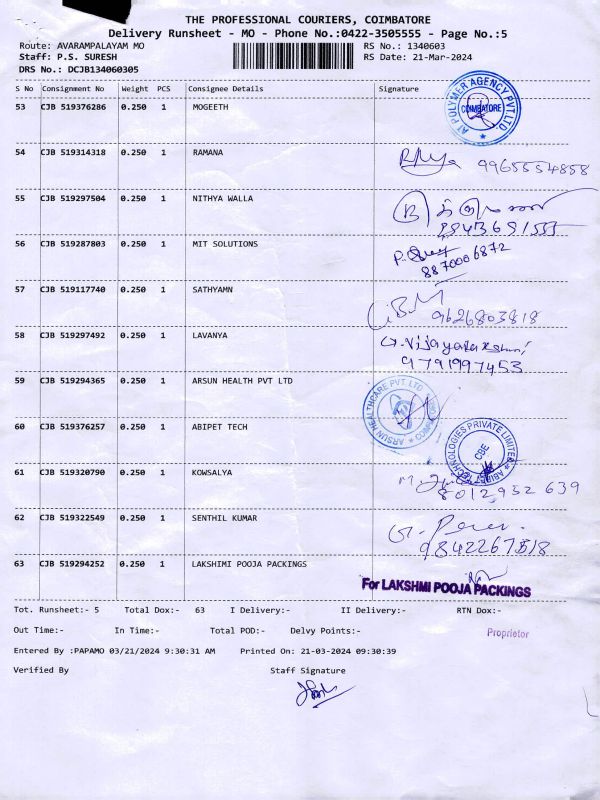 THE PROFESSIONAL COURIERS, COIMBATORE
Delivery Runsheet - MO - Phone No.:0422-3505555 - Page No.:5
Route: AVARAMPALAYAM MO RS No.: 1340603
Staff: P.S. SURESH RS Date: 21-Mar-2024
DRS No.: DCJB134060305
S No Consignment No Weight PCS Consignee Details Signature
53 CJB 519376286 0.250 1 MOGEETH
AI POLYMER AGENCY PVT LTD COIMBATORE
54 CJB 519314318 0.250 1 RAMANA 9965554858
55 CJB 519297504 0.250 1 NITHYA WALLA
56 CJB 519287803 0.250 1 MIT SOLUTIONS
8870006872
57 CJB 519117740 0.250 1 SATHYAMN
9626803818
58 CJB 519297492 0.250 1 LAVANYA
9791997453
59 CJB 519294365 0.250 1 ARSUN HEALTH PVT LTD
ARSUN HEALTHCARE PVT. LTD
60 CJB 519376257 0.250 1 ABIPET TECH
TECHNOLOGIES PRIVATE LIMITED CBE
61 CJB 519320790 0.250 1 KOWSALYA
8012952 639
62 CJB 519322549 0.250 1 SENTHIL KUMAR
63 CJB 519294252 0.250 1 LAKSHIMI POOJA PACKINGS
For LAKSHMI POOJA PACKINGS
Tot. Runsheet:- 5 Total Dox:- 63 I Delivery:- II Delivery:- RTN Dox:-
Out Time:- In Time:- Total POD:- Delvy Points:-
Proprietor
Entered By :PAPAMO 03/21/2024 9:30:31 AM Printed On: 21-03-2024 09:30:39
Verified By Staff Signature